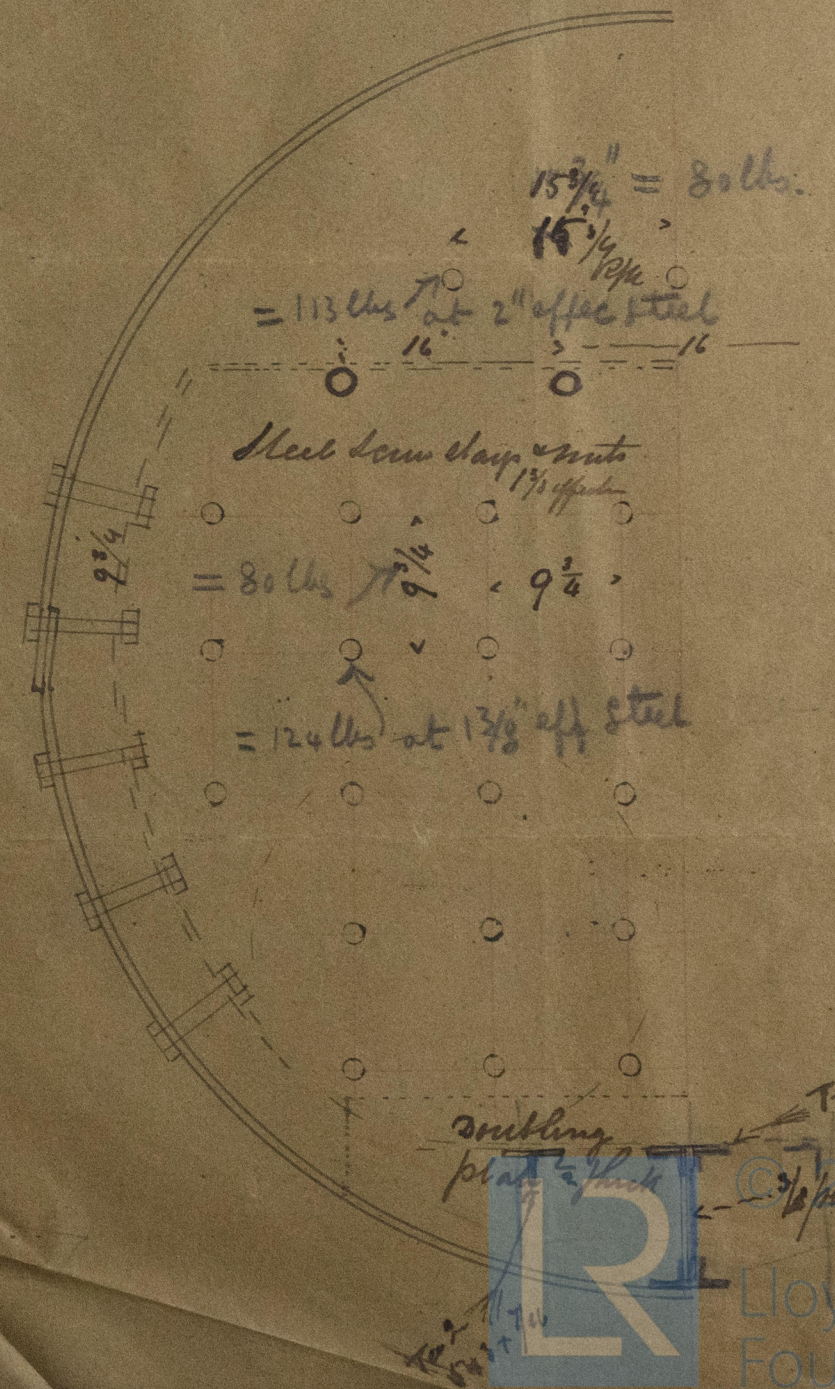 15 3/4" = 80 lbs.
15 3/4
= 113 lbs at 2" effec steel
16"
16
Steel Screw stays & nuts
1 3/8 effective
9 3/4
= 80 lbs
9 3/4
9 3/4
= 124 lbs at 1 3/8" eff steel
Doubling
plate 1/2 thick
©
LR
Lloy
Fou